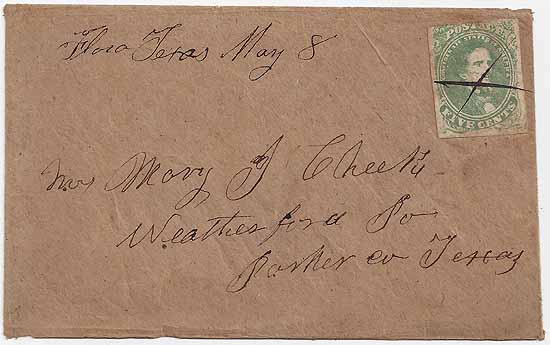 Flora Texas May 8
POSTAGE
CONFEDERATE STATES OF AMERICA
FIVE CENTS
Mrs Mary J Cheek
Weatherford Po
Parker co Texas